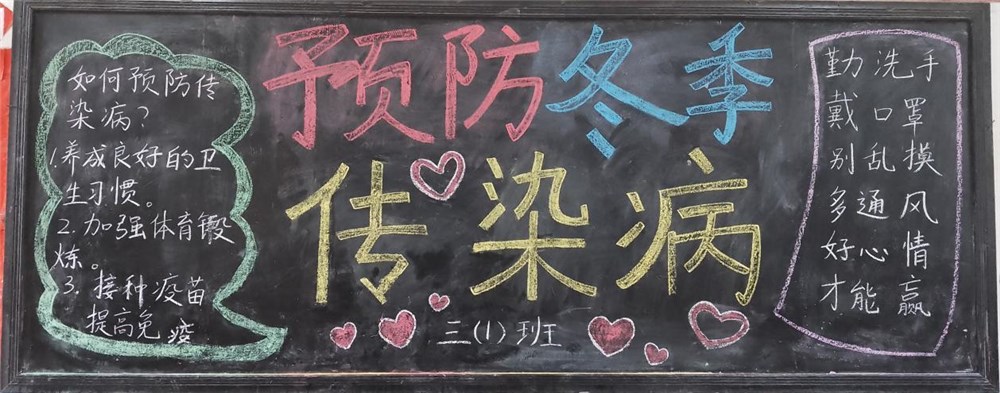 如何预防传
染病?
1.养成良好的卫
生习惯。
2.加强体育锻
炼。
3.接种疫苗
提高免疫
预防冬季
传染病
三(1)班
勤洗手
戴口罩
别乱摸
多通风
好心情
才能赢